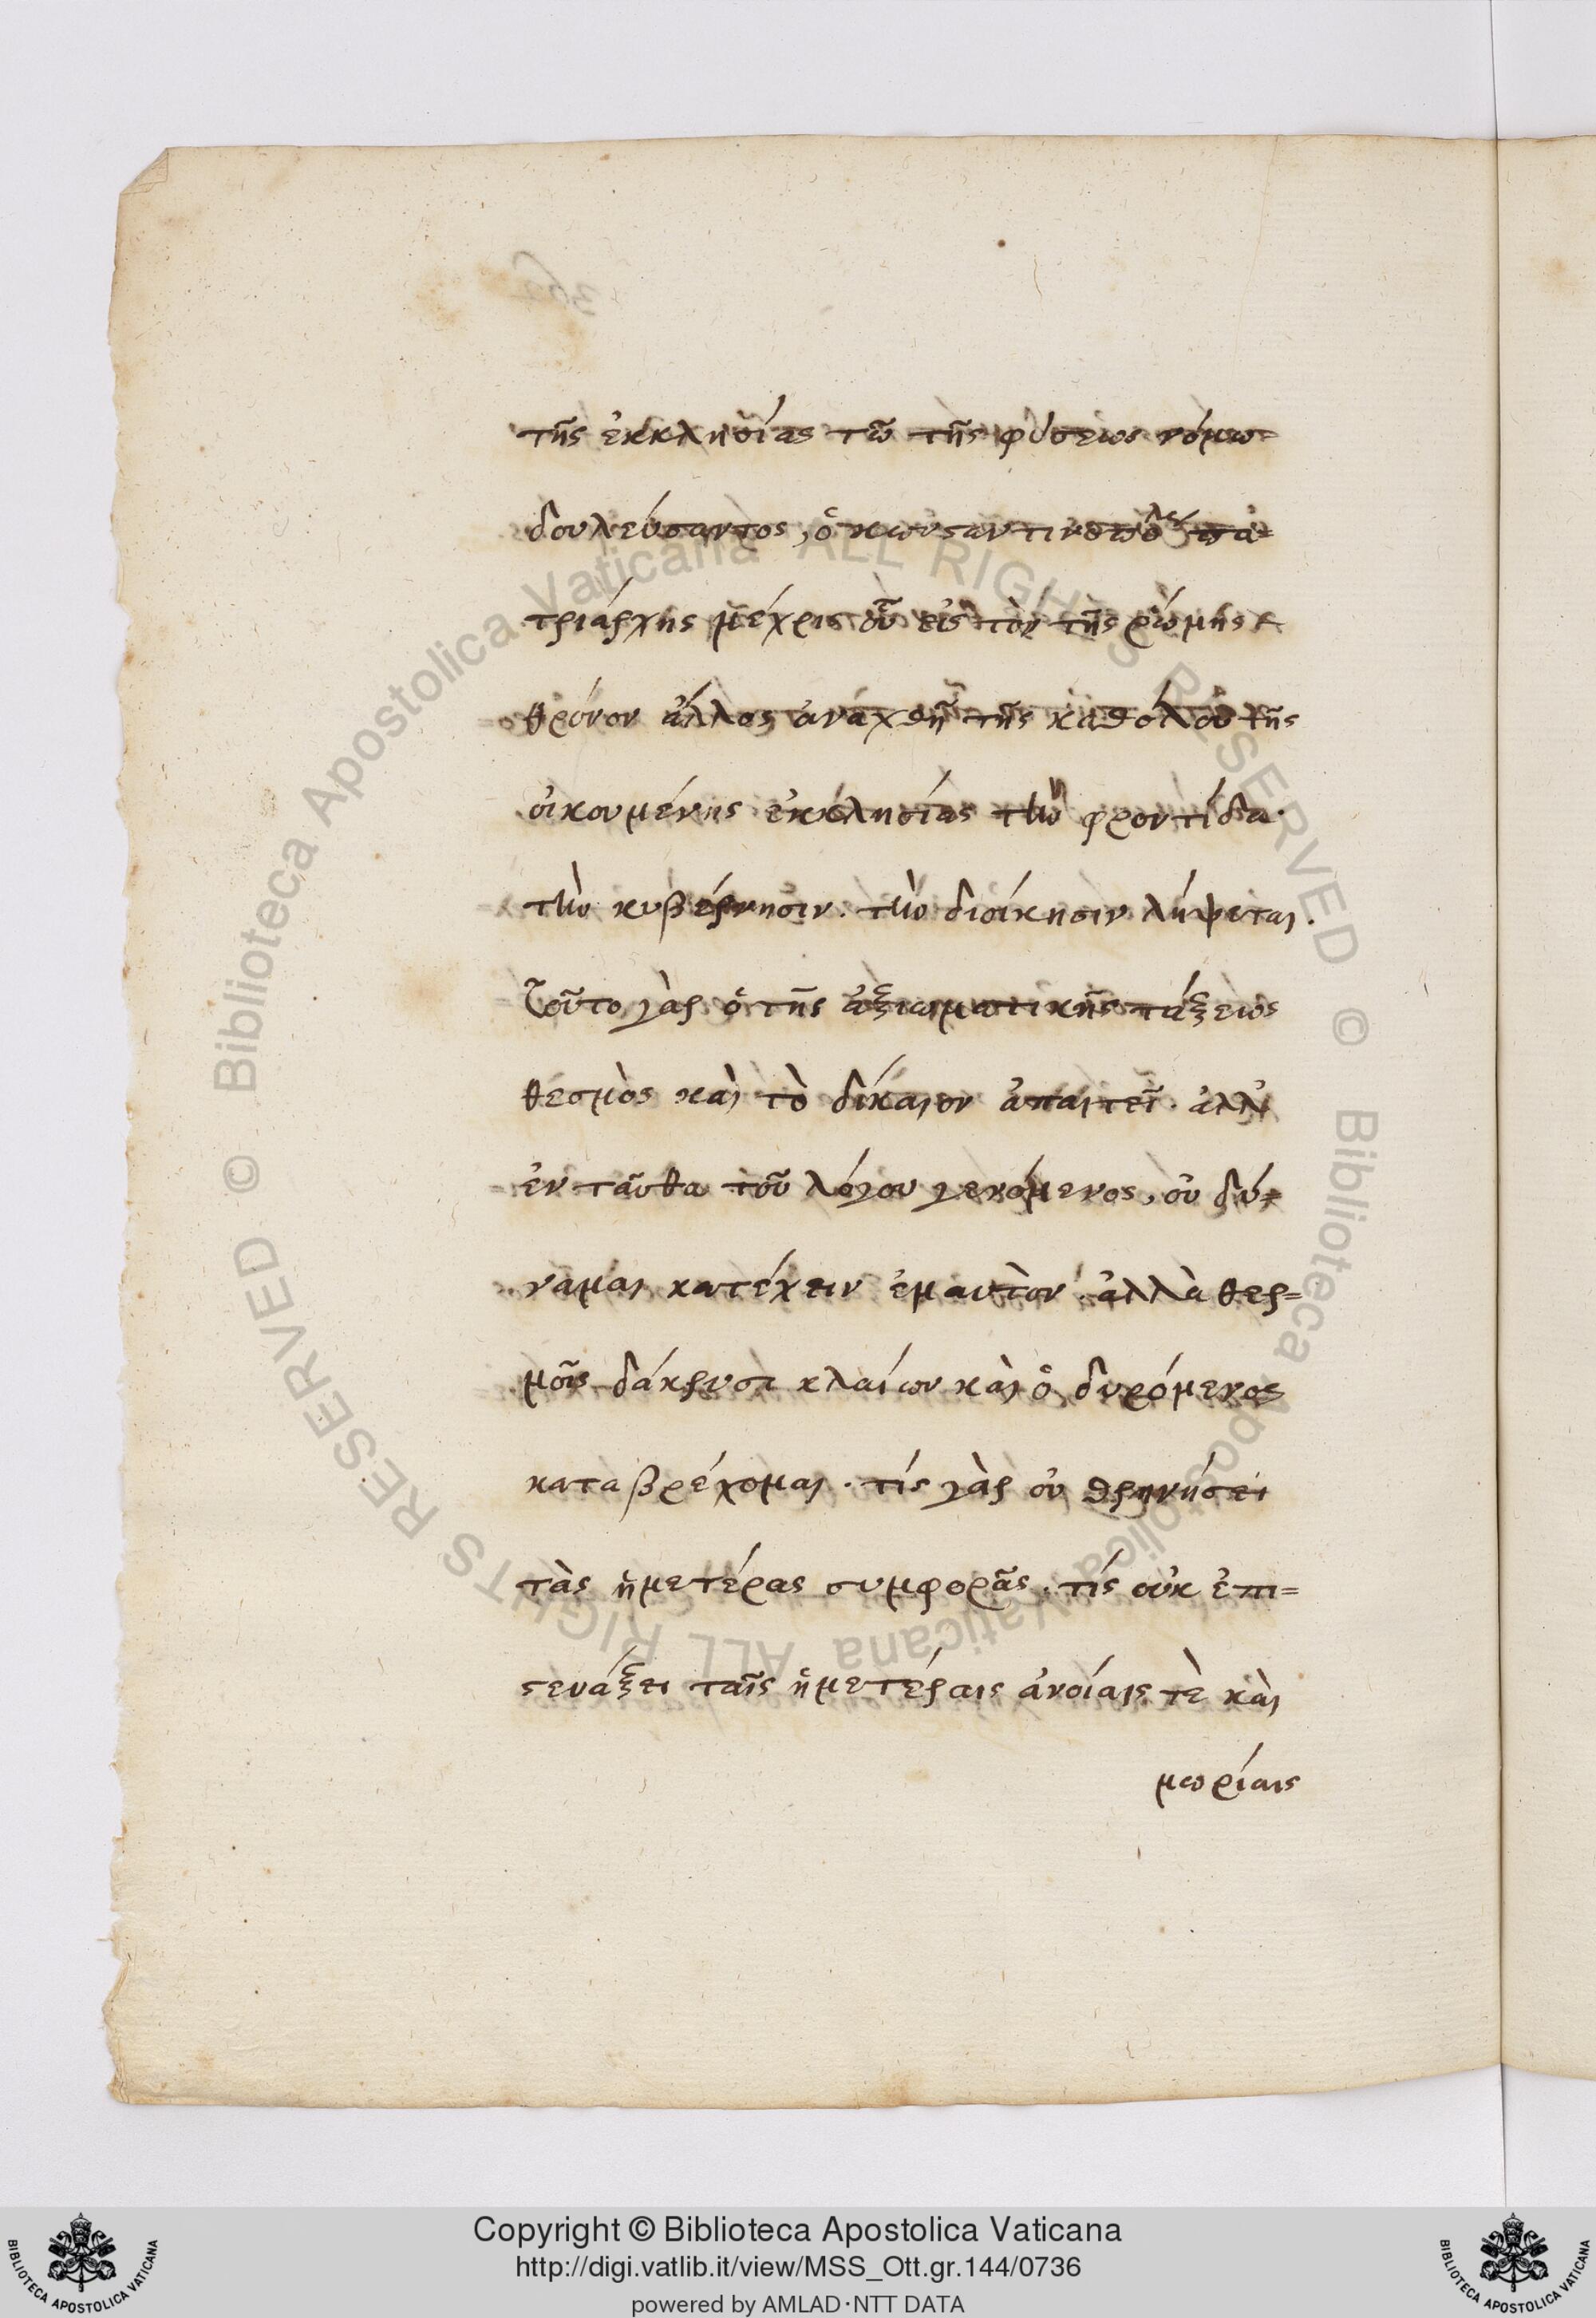 τῆς ἐκκλησίας τῶ τῆς φύσεως νόμω
δουλεύσαντος, ὁ κωνσαντινουπόλεως πα=
τριάρχης μέχρις οὗ εἰς τὸν τῆς ῥώμης
θρόνον ἄλλος ἀναχθῆ τῆς καθόλου τῆς
οἰκουμένης ἐκκλησίας τὴν φροντίδα·
τὴν κυβέρνησιν. τὴν διοίκησιν λήψεται.
τοῦτο γὰρ ὁ τῆς ἀξιωματικῆς τάξεως
θεσμὸς καὶ τὸ δίκαιον ἀπαιτεῖ. ἀλλ'
ἐν ταῦθα τοῦ λόγου γενόμενος, οὐ δύ=
ναμαι κατέχειν ἐμαυτὸν. ἀλλὰ θερ=
μοῖς δάκρυσι κλαίων καὶ ὀ δυρόμενος
καταβρέχομαι. τίς γὰρ οὐ θρηνήσει
τὰς ἡμετέρας συμφορᾶς. τίς οὐκ ἐπι=
στενάξει ταῖς ἡμετέραις ἀνοίαις τὲ καὶ
μωρίαις
© Biblioteca Apostolica Vaticana ALL RIGHTS RESERVED © Biblioteca Apostolica Vaticana ALL RIGHTS RESERVED
Copyright © Biblioteca Apostolica Vaticana
http://digi.vatlib.it/view/MSS_Ott.gr.144/0736
powered by AMLAD·NTT DATA
BIBLIOTECA APOSTOLICA VATICANA
BIBLIOTECA APOSTOLICA VATICANA